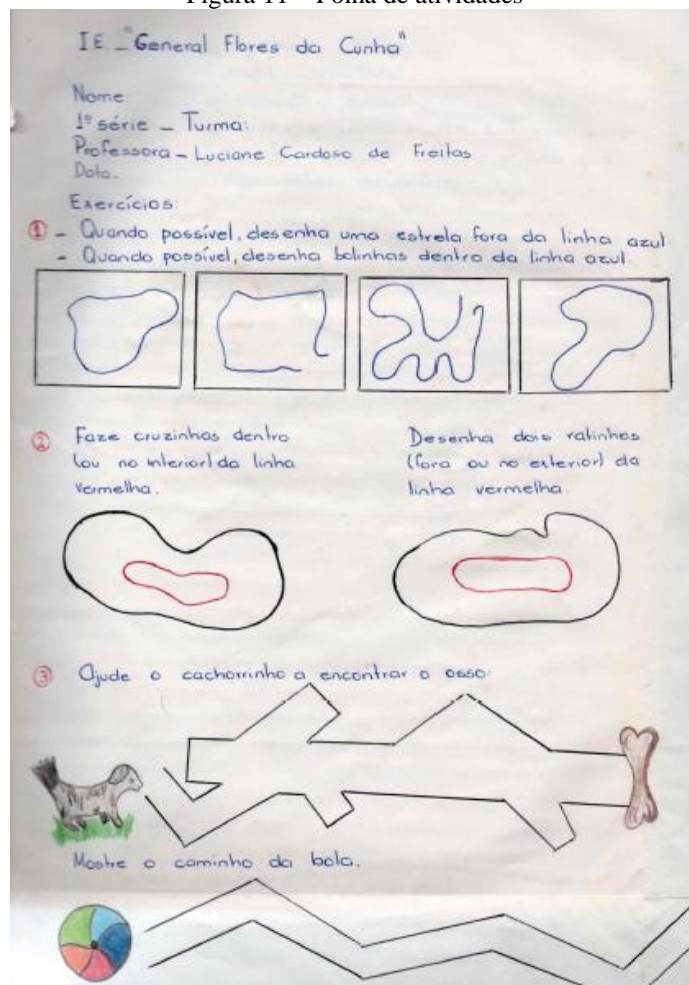 Figura 11 – Folha de atividades
IE _ "General Flores da Cunha"
Nome
1ª série _ Turma:
Professora - Luciane Cardoso de Freitas
Data.
Exercícios:
① - Quando possível, desenha uma estrela fora da linha azul.
- Quando possível, desenha bolinhas dentro da linha azul.
② Faze cruzinhas dentro
(ou no interior) da linha
vermelha.
Desenha dois ratinhos
(fora ou no exterior) da
linha vermelha.
③ Ajude o cachorrinho a encontrar o osso.
Mostre o caminho da bola.